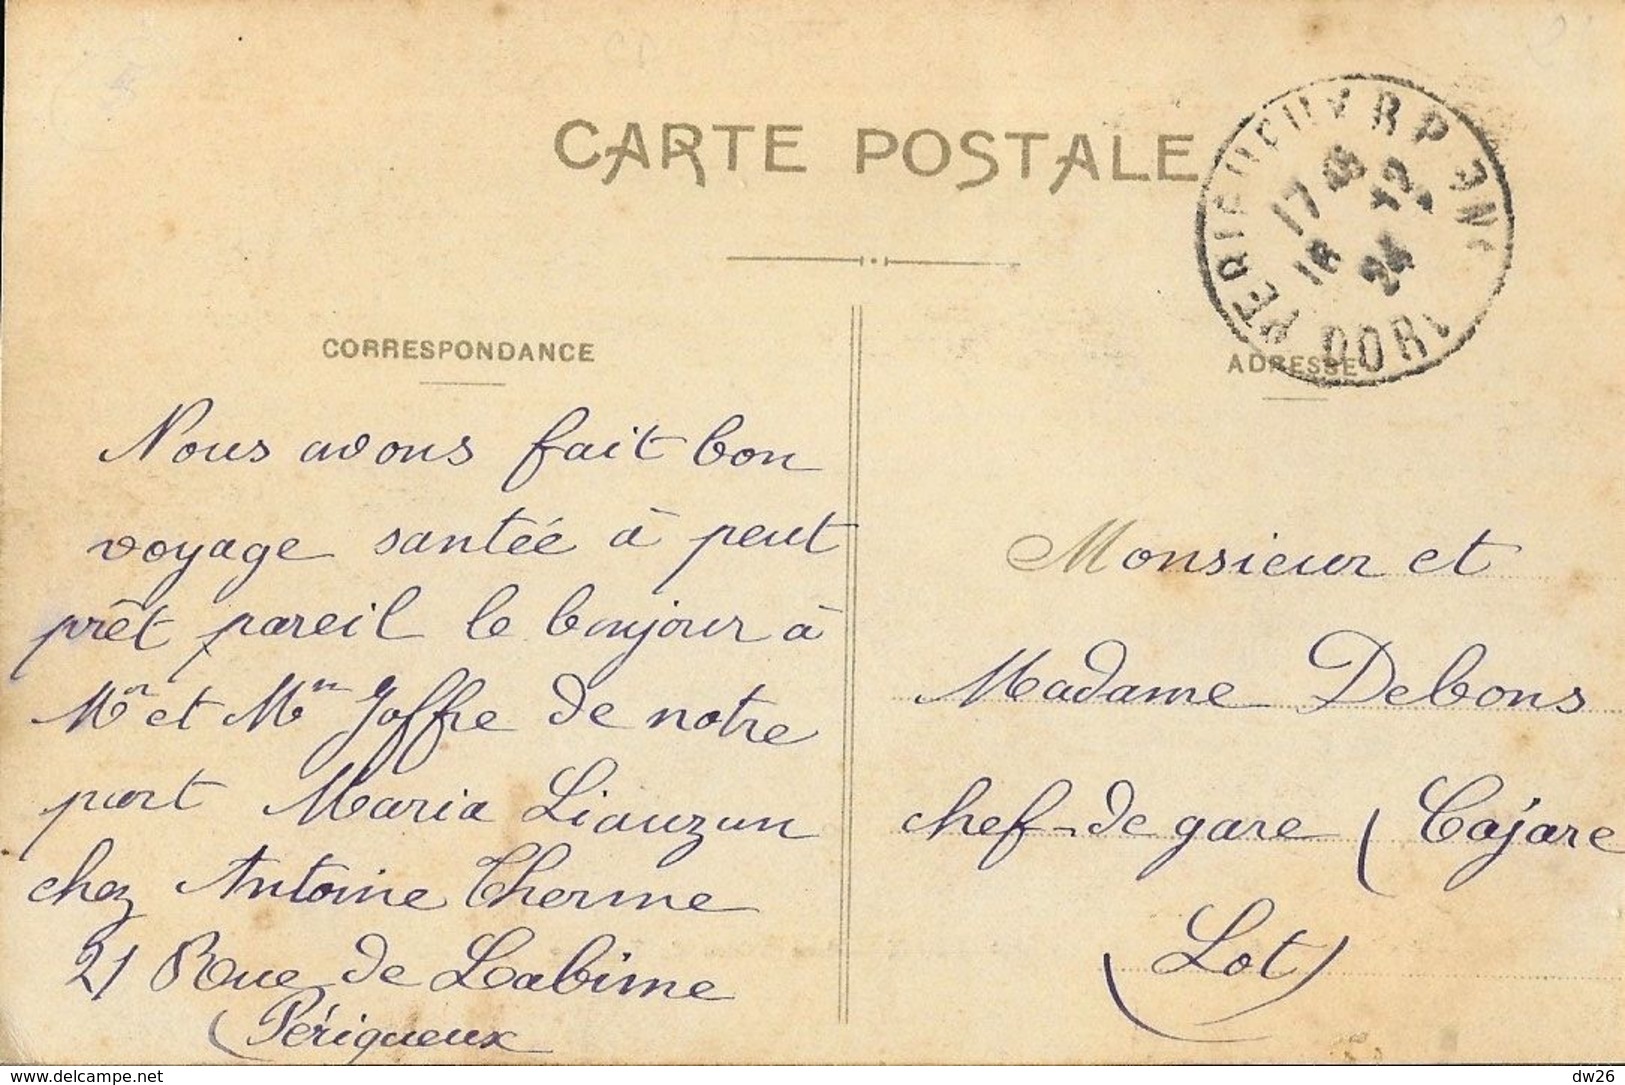 CARTE POSTALE
CORRESPONDANCE
Nous avons fait bon
voyage santée à peut
prêt pareil le bonjour à
Mr et Mm Joffre de notre
part Maria Liauzun
chez Antoine Therme
21 Rue de Labime
(Périgueux
17 45
16 12
24
DOR
ADRESSE
Monsieur et
Madame Debons
chef-de gare (Cajare
(Lot)
www.delcampe.net
dw26